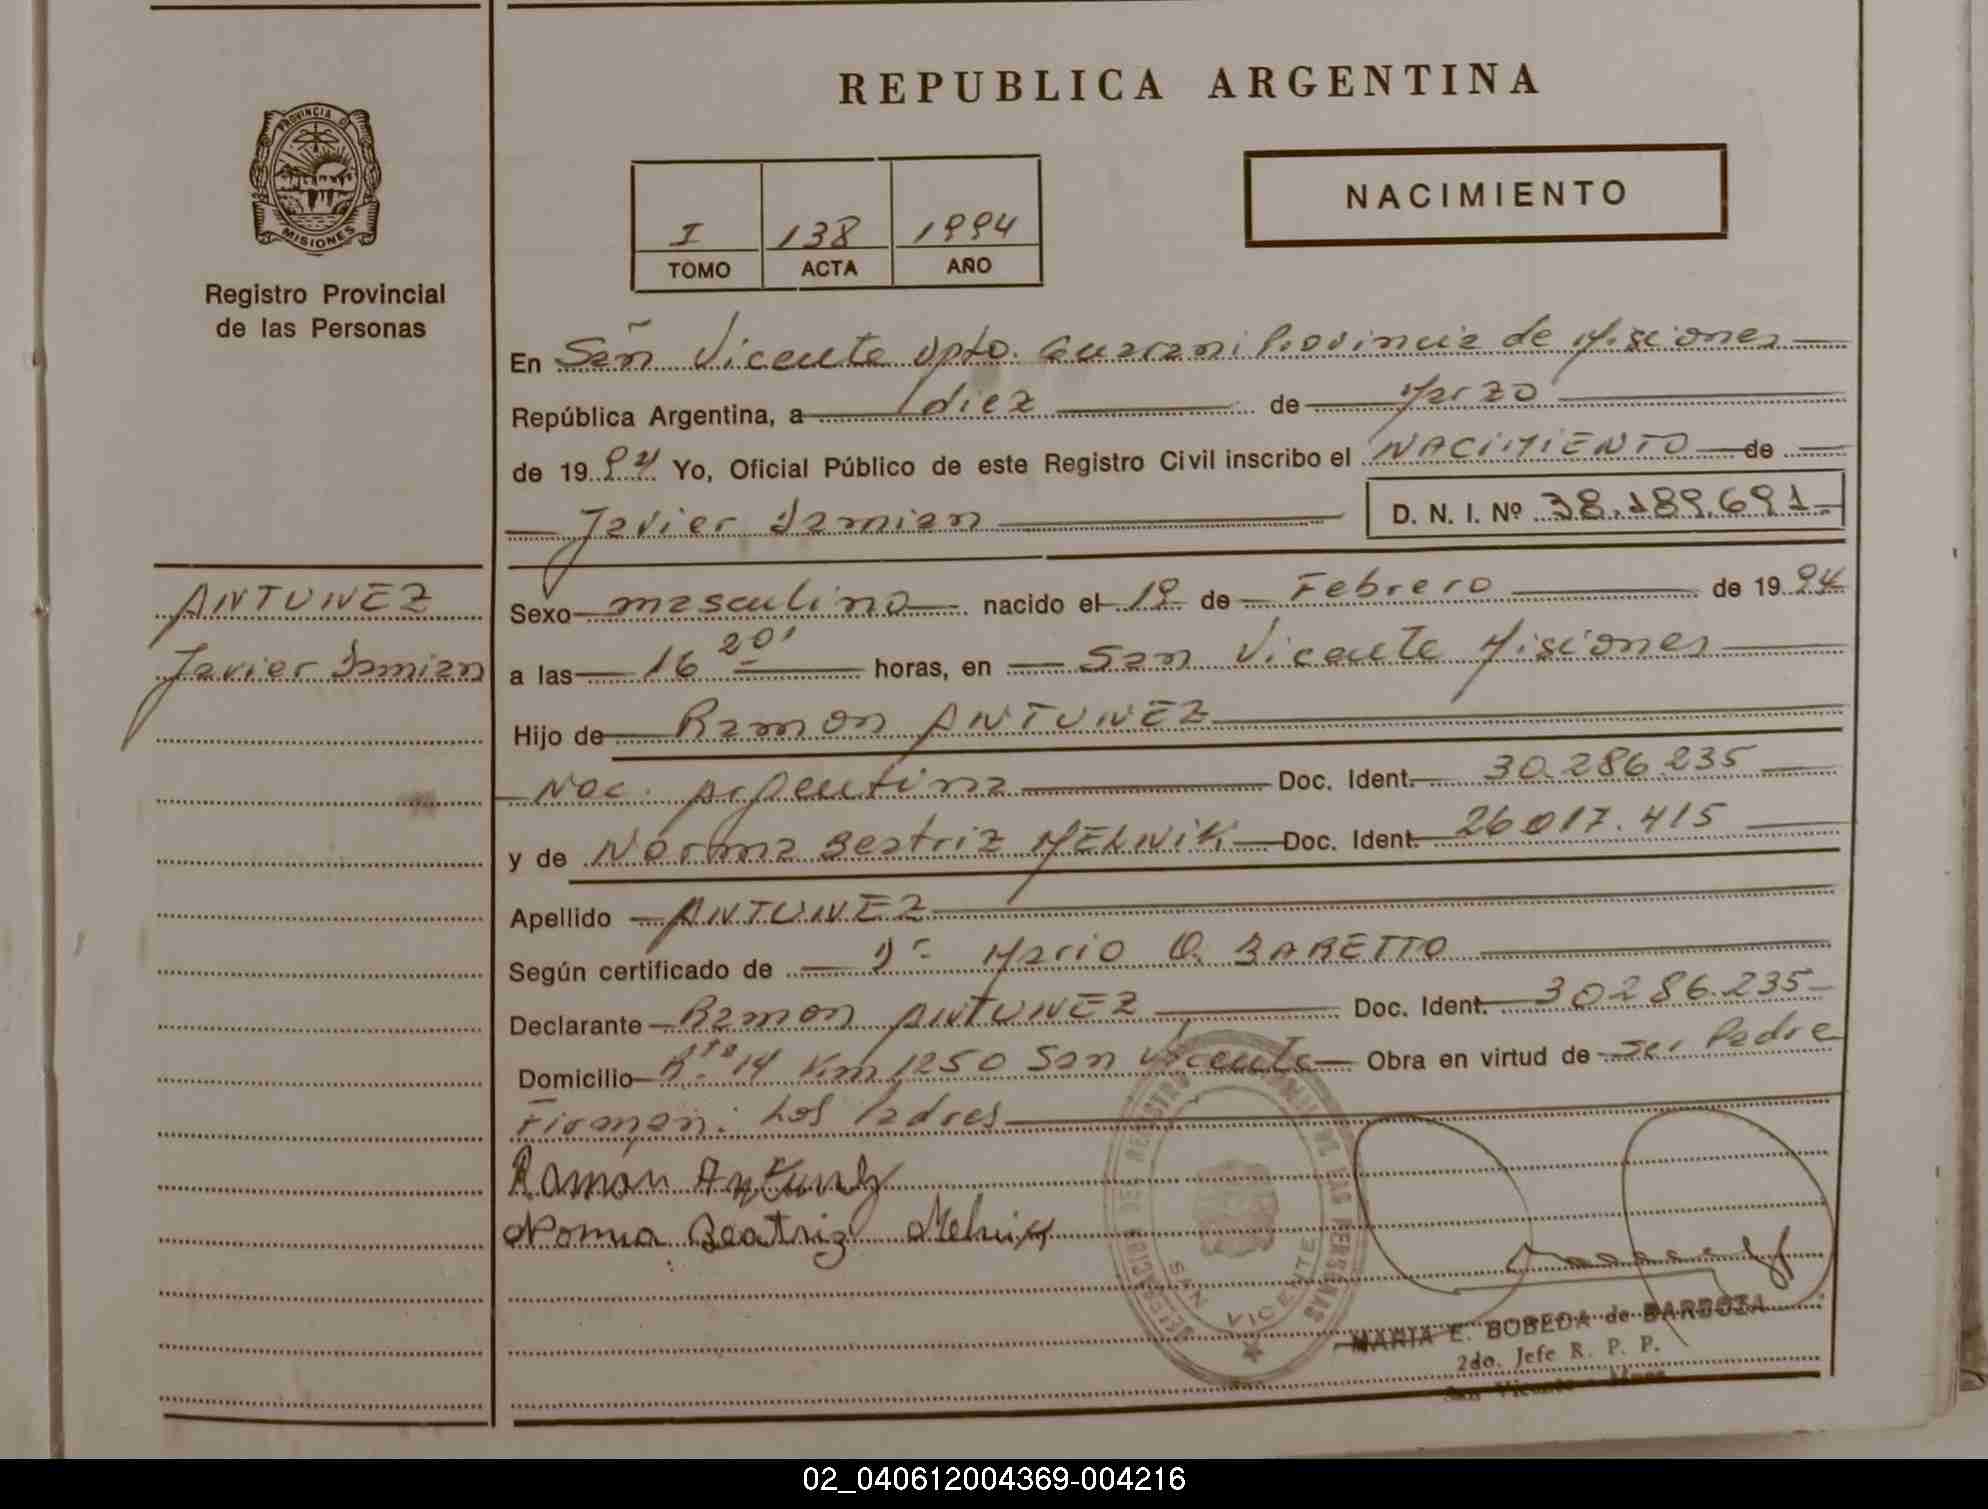 REPUBLICA ARGENTINA
PROVINCIA D
MISIONES
Registro Provincial
de las Personas
I 138 1994
TOMO ACTA AÑO
NACIMIENTO
En San Vicente Dpto. Guarani Provincia de Misiones
República Argentina, a diez de Marzo
de 1994 Yo, Oficial Público de este Registro Civil inscribo el NACIMIENTO de
Javier Damian D. N. I. Nº 38.189.691
ANTUNEZ
Javier Damian
Sexo masculino nacido el 19 de Febrero de 1994
a las 16 20' horas, en San Vicente Misiones
Hijo de Ramon ANTUNEZ
Nac. Argentina Doc. Ident. 30.286.235
y de Norma Beatriz MELNIK Doc. Ident. 26017.415
Apellido ANTUNEZ
Según certificado de Dr. Mario O. BARETTO
Declarante Ramon ANTUNEZ Doc. Ident. 30286.235
Domicilio Rta 14 Km 1250 San Vicente Obra en virtud de ser Padre
Firman: Los Padres
Ramon Antunez
Norma Beatriz Melnik
REGISTRO DE LAS PERSONAS
SAN VICENTE
MARIA E. BOBEDA de BARBOZA
2do. Jefe R. P. P.
San Vicente - Mnes.
02_040612004369-004216